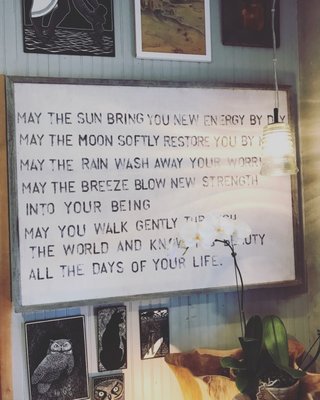 MAY THE SUN BRING YOU NEW ENERGY BY DAY
MAY THE MOON SOFTLY RESTORE YOU BY
MAY THE RAIN WASH AWAY YOUR
MAY THE BREEZE BLOW NEW STRENGTH
INTO YOUR BEING
MAY YOU WALK GENTLY THROUGH
THE WORLD AND KNOW BEAUTY
ALL THE DAYS OF YOUR LIFE.